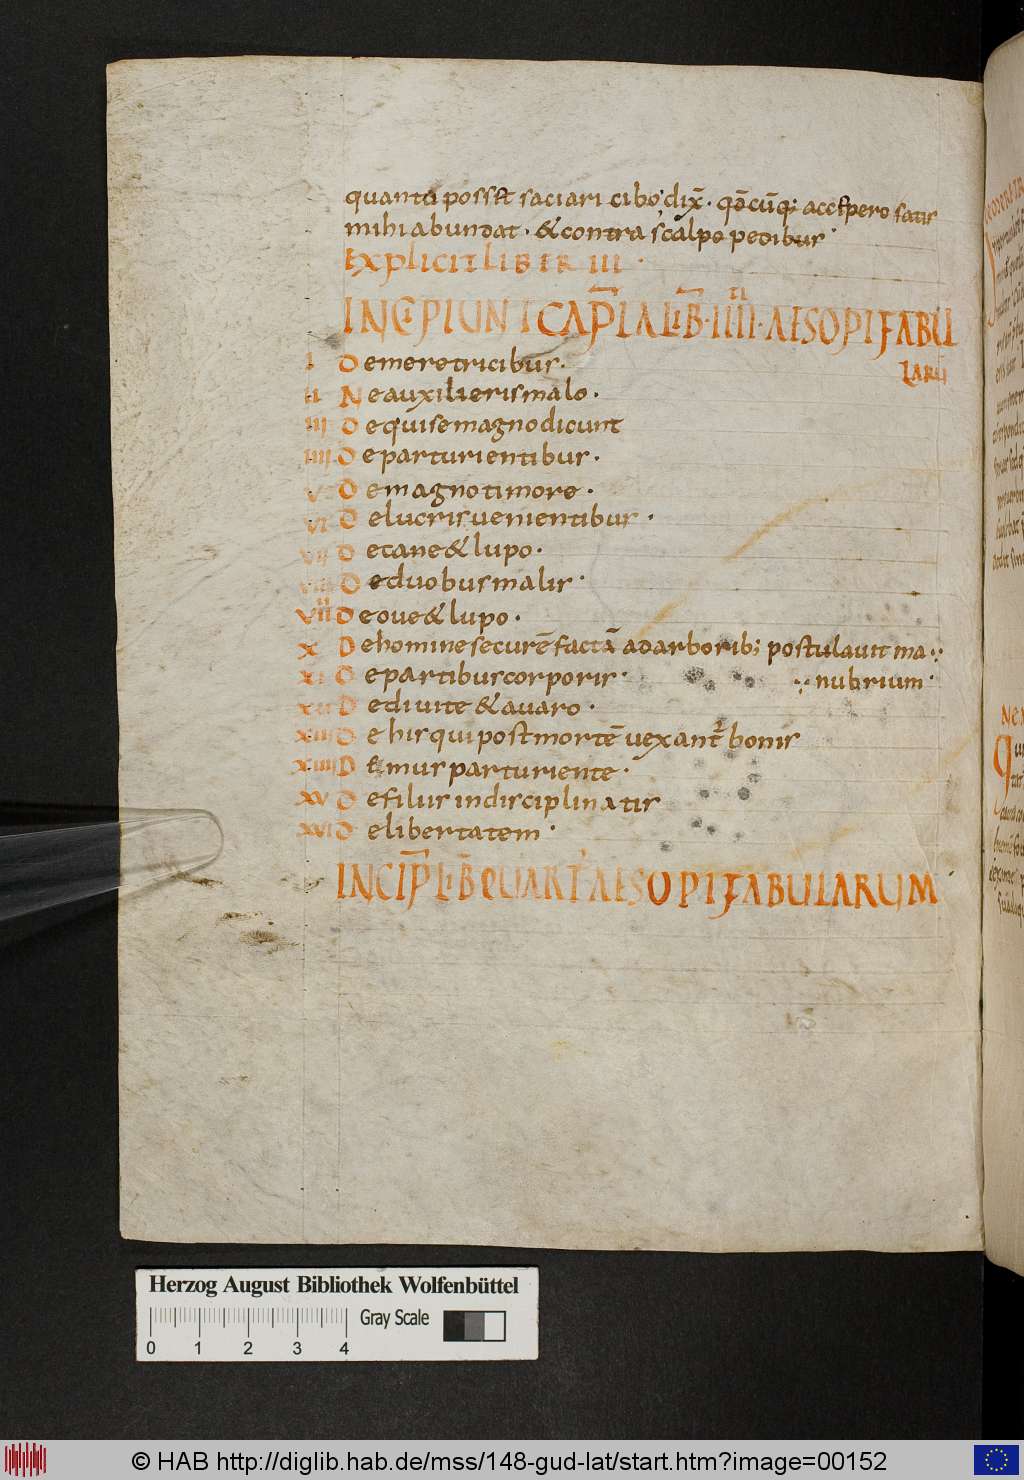 quanto possÆ saciari cibo dix̄. qd̄cūq; accępero satis
mihi abundat. &contra scalpo pedibus
Explicit liber III
INCIPIUNT CAPĪLA LIB̄ IIII AESOPI FABU
LARU
I De meretricibus.
II Ne auxilieris malo.
III De qui se magno dicunt
IIII De parturientibus.
V De magno timore.
VI De lucris uenientibus.
VII De cane & lupo.
VIII De duobus malis.
VIIII De oue & lupo.
X De homine securē factā ad arborib; postulauit ma
XI De partibus corporis. nubrium.
XII De diuite & auaro.
XIII De his qui post mortē uexant bonis
XIIII De mus parturiente.
XV De filius indisciplinatis
XVI De libertatem.
INCIP̄ LIB̄ QUART AESOPI FABULARUM
Herzog August Bibliothek Wolfenbüttel
Gray Scale
0 1 2 3 4
© HAB http://diglib.hab.de/mss/148-gud-lat/start.htm?image=00152